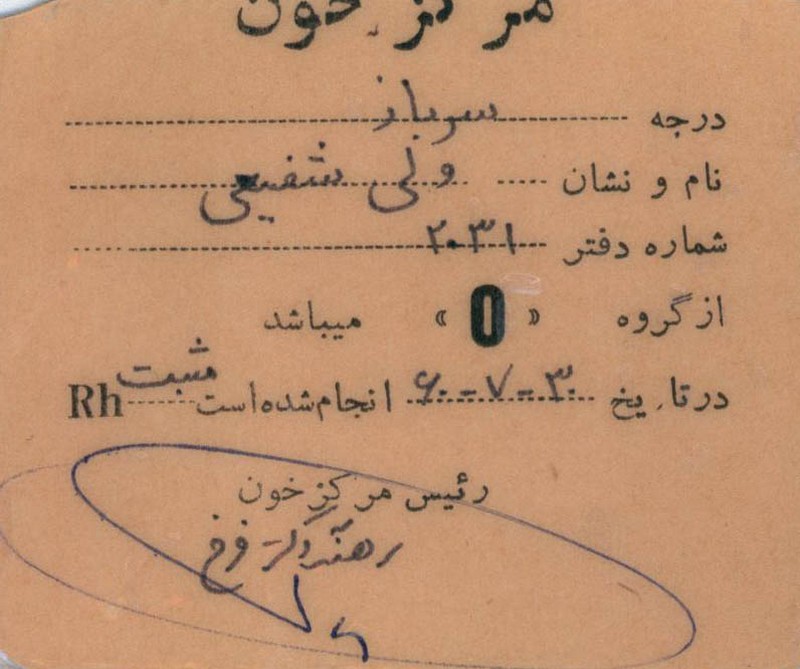 مرکز خون
درجه سرباز
نام و نشان ولی شفیعی
شماره دفتر ۲۰۳۱
از گروه « O » میباشد
در تاریخ ۳۰-۷-۶۰ انجام شده است مثبت Rh
رئیس مرکز خون
فرخ